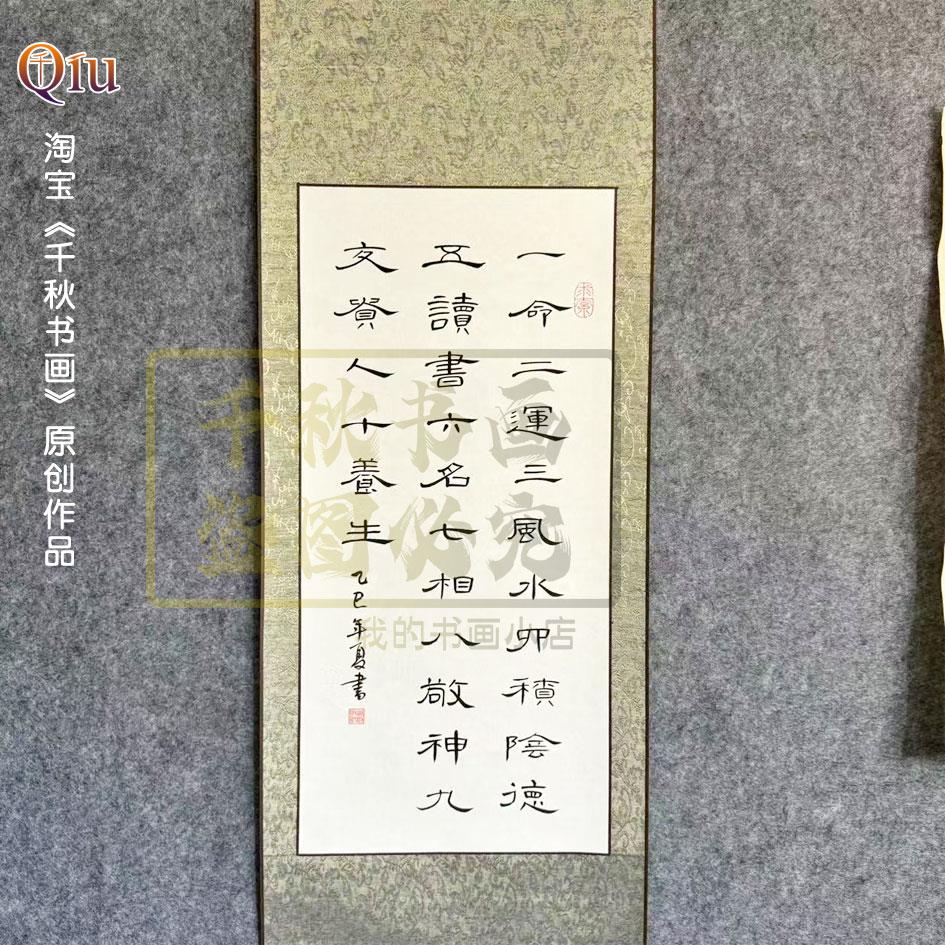 Qiu
淘宝《千秋书画》原创作品
一命二運三風水卯積陰德
五讀書六名七相八敬神九
交貴人十養生
乙巳年夏書
千秋书画
盗图必究
我的书画小店